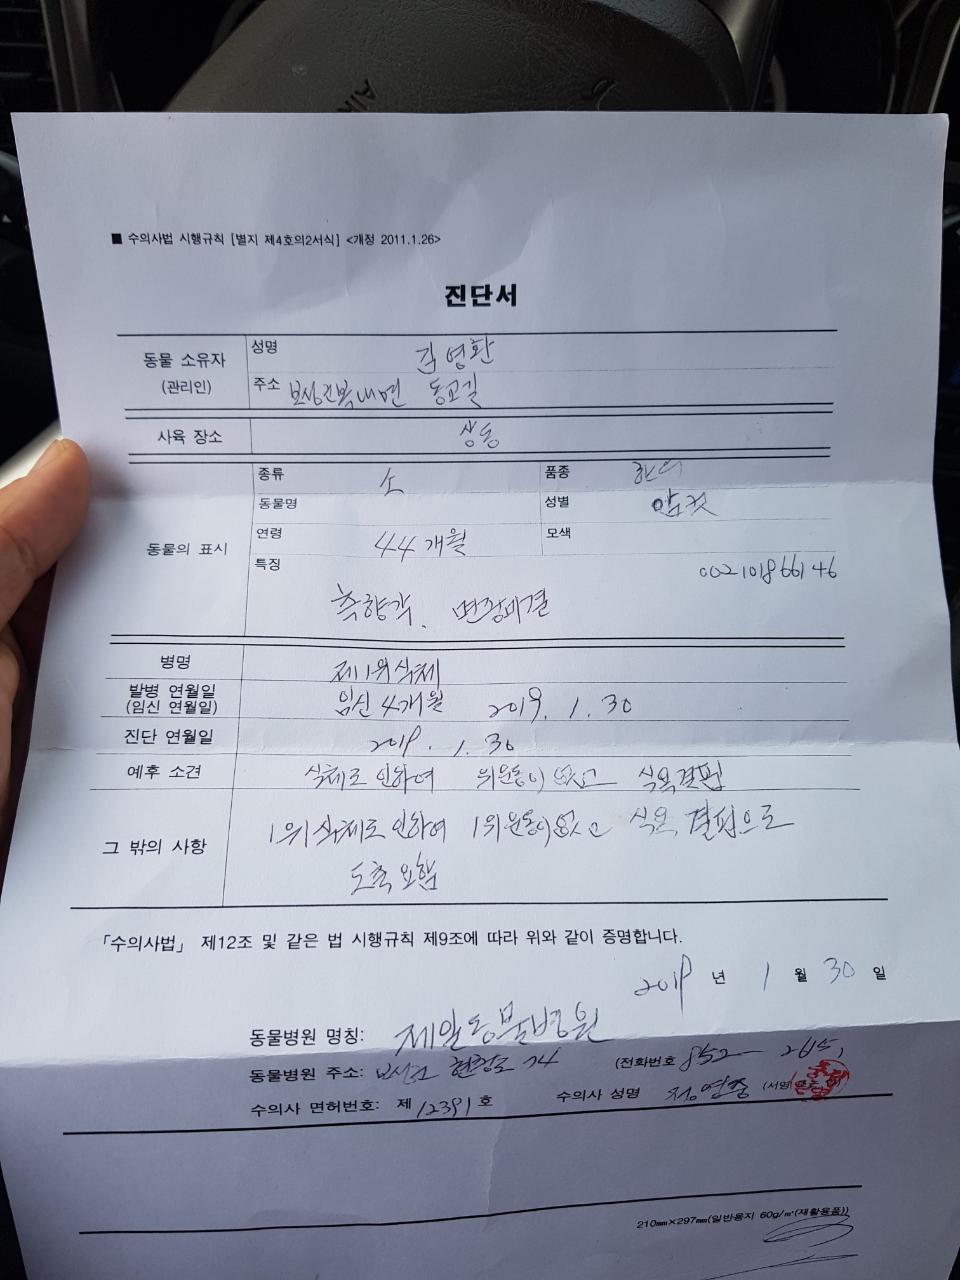 ■ 수의사법 시행규칙 [별지 제4호의2서식] <개정 2011.1.26>
진단서
동물 소유자
(관리인)
성명 영환
주소 보성군 복내면 동교길
사육 장소 상동
동물의 표시
종류 소 품종 한우
동물명 성별 암컷
연령 44개월 모색
특징 002101866146
축향각.
병명 제1위식체
발병 연월일
(임신 연월일) 임신 4개월 2019. 1. 30
진단 연월일 2019. 1. 30
예후 소견 식체로 인하여 위운동이 없고 식욕결핍
그 밖의 사항 1위식체로 인하여 1위운동이 없고 식욕 결핍으로
도축 요함
「수의사법」 제12조 및 같은 법 시행규칙 제9조에 따라 위와 같이 증명합니다.
2019 년 1 월 30 일
동물병원 명칭: 제일동물병원
동물병원 주소: 74 (전화번호 852-
수의사 면허번호: 제 12391 호 수의사 성명 (서명
210㎜×297㎜(일반용지 60g/㎡(재활용품))
AI